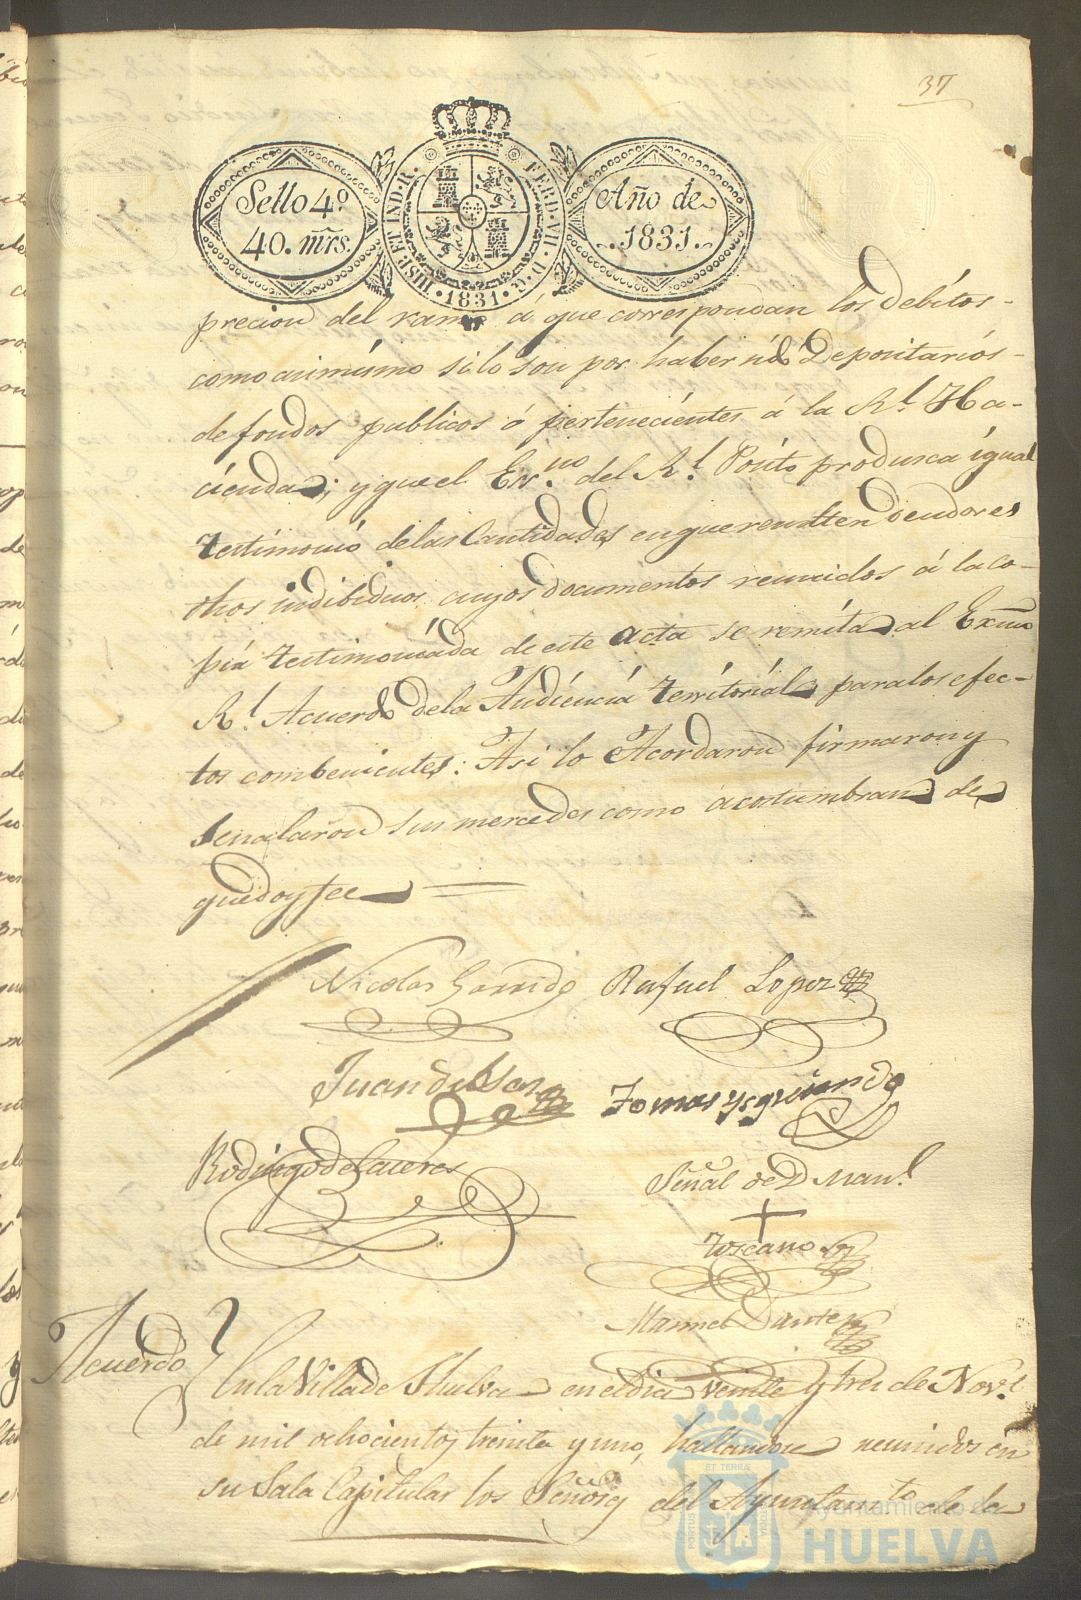 37
Sello 4º
40. mrs.
HISP. ET IND. R. FERD. VII. D. G. 1831.
Año de
1831.
precion del ramo á que correspondan los debitos
como asimismo si lo son por haber sido Depositarios
de fondos publicos ó pertenecientes á la Rl. Ha-
cienda; y que el Esno. del Rl. Pósito produsca igual
testimonio de las Cantidades en que resulten deudores
dhos indibiduos cuyos documentos reunidos á la co-
pia testimoniada de este acta se remita al Exmo
Rl. Acuerdo de la Audiencia territorial para los efec-
tos combenientes: Asi lo Acordaron firmaron y
señalaron sus mercedes como acostumbran de
que doy fee
Nicolas Garrido Rafael Lopez
Juan de
Tomas
Rodrigo de Caceres
Señal de D. Manl.
Toscano
Manuel
Acuerdo
En la Villa de Huelva en el dia veinte y tres de Novl.
de mil ochocientos treinta y uno, hallandose reunidos en
su Sala Capitular los Señores del Ayuntamto de la
PORTUS ET TERRAE CUSTODIA
Ayuntamiento de
HUELVA